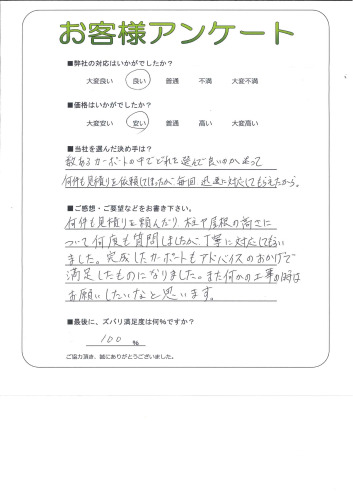 お客様アンケート
■弊社の対応はいかがでしたか?
大変良い 良い 普通 不満 大変不満
■価格はいかがでしたか?
大変安い 安い 普通 高い 大変高い
■当社を選んだ決め手は?
数あるカーポートの中でどれを選んで良いのか迷って
何件も見積りを依頼してしまったが、毎回 迅速に対応してもらえたから。
■ご感想・ご要望などをお書き下さい。
何件も見積りを頼んだり 柱や屋根の高さに
ついて何度も質問しましたが、丁寧に対応してもらい
ました。完成したカーポートもアドバイスのおかげで
満足したものになりました。また何かの工事の時は
お願いしたいなと思います。
■最後に、ズバリ満足度は何%ですか?
100 %
ご協力頂き、誠にありがとうございました。